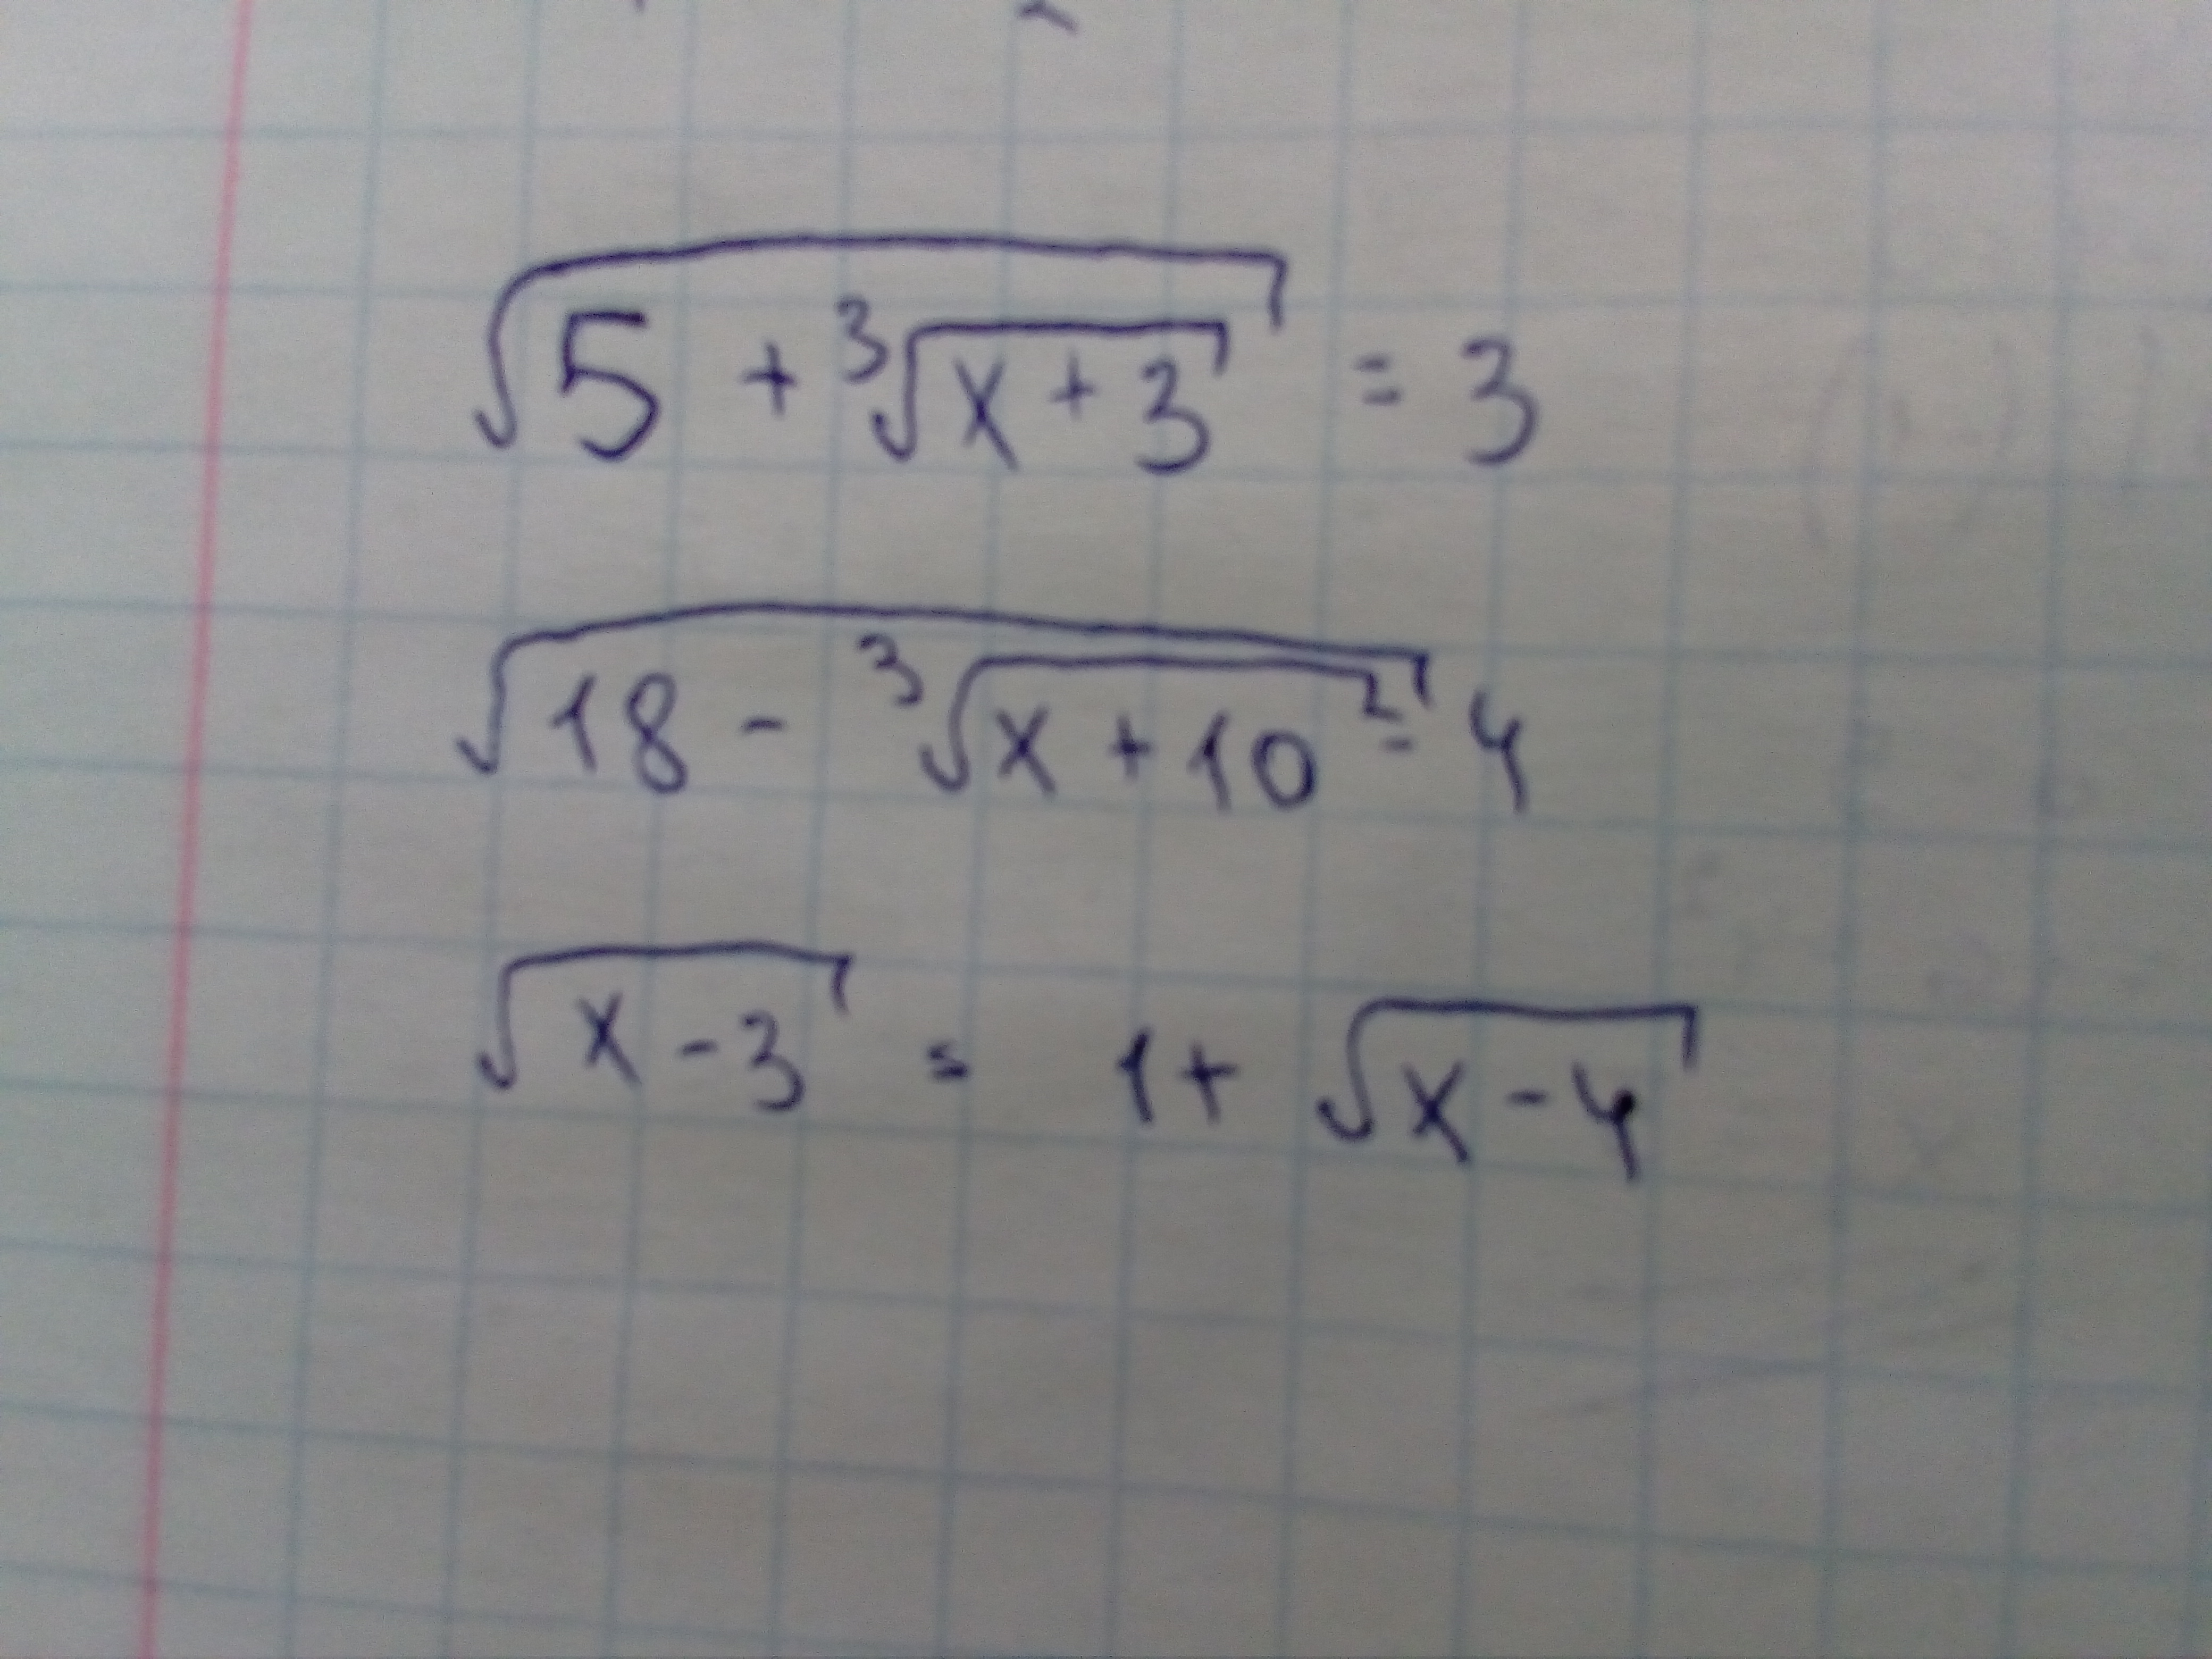 √(5 + ³√(x + 3)) = 3
√(18 - ³√(x + 10)) = 4
√(x - 3) = 1 + √(x - 4)